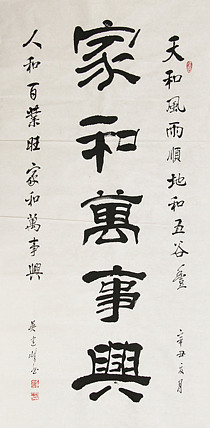 天和風雨順地和五谷豐
辛丑之月
家和萬事興
人和百業旺家和萬事興